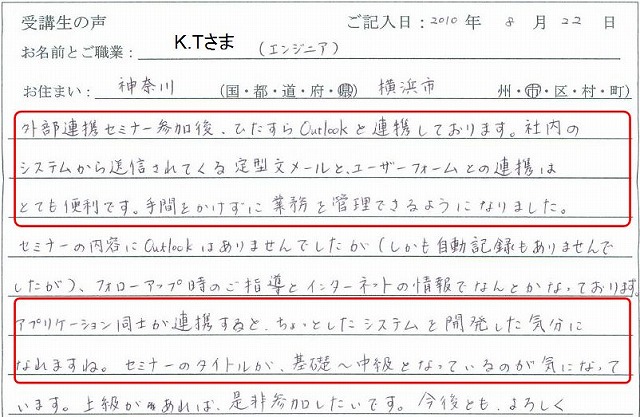 受講生の声 ご記入日：2010 年 8 月 22 日
お名前とご職業： K.Tさま （エンジニア）
お住まい： 神奈川 （国・都・道・府・県） 横浜市 州・市・区・村・町）
外部連携セミナー参加後、ひたすらOutlookと連携しております。社内の
システムから送信されてくる定型文メールと、ユーザーフォームとの連携は
とても便利です。手間をかけずに業務を管理できるようになりました。
セミナーの内容にOutlookはありませんでしたが（しかも自動記録もありませんで
したが）、フォローアップ時のご指導とインターネットの情報でなんとかなっております。
アプリケーション同士が連携すると、ちょっとしたシステムを開発した気分に
なれますね。セミナーのタイトルが、基礎～中級となっているのが気になって
います。上級があれば、是非参加したいです。今後とも、よろしく